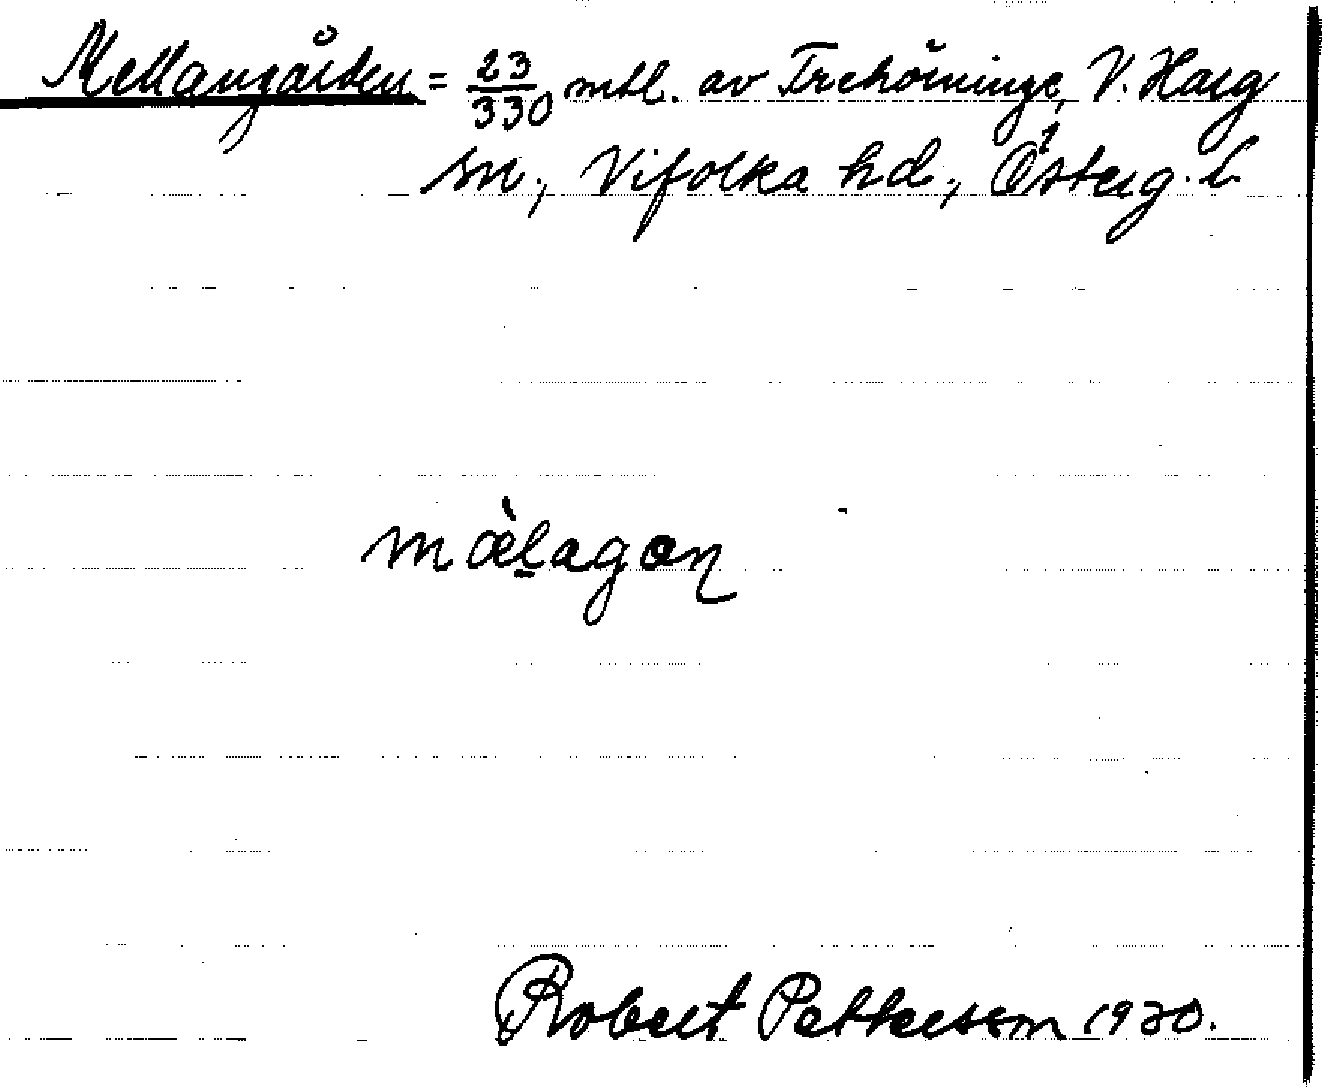 Mellangården = 23/330 mtl. av Trehörninge, V. Harg
sn., Vifolka hd., Österg. l.
mæ̀l̠agaɳ
Robert Pettersson 1930.